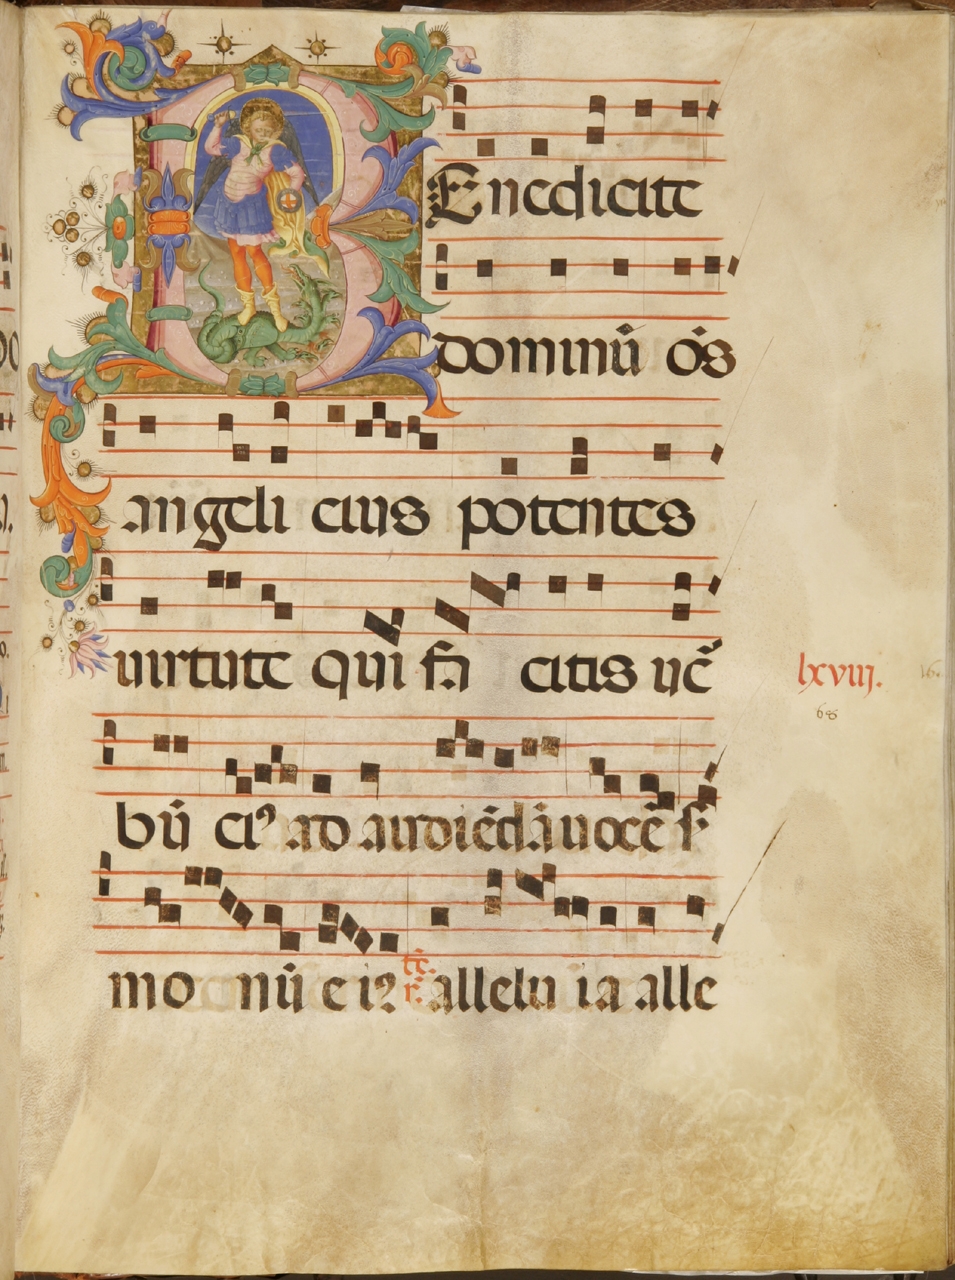 BEnedicite
dominū oīs
angeli eius potentes
uirtute qui fa citis uē
bū eiꝰ ad audiēdā uocē ẜ
mo nū eiꝝ tē. p. allelu ia alle
lxviij.
68
16.